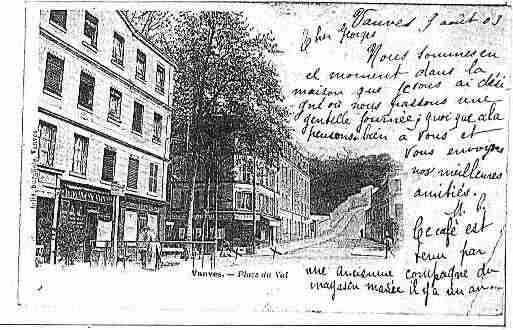 Vanves 9 août 03
Cher Georges
Nous sommes en
ce moment dans la
maison que je vous ai dési-
gné où nous passons une
gentille journée; quoi que cela
pensons bien à vous et
vous envoyons
nos meilleures
amitiés.
M. B.
Ce café est
tenu par
une ancienne compagne du
magasin mariée il y a un an
Vanves. — Place du Val